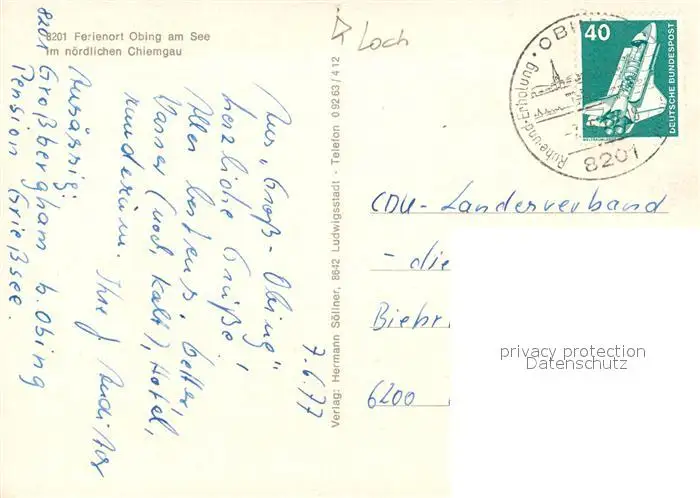 8201 Ferienort Obing am See
im nördlichen Chiemgau
Loch
OBING
Ruhe und Erholung
8201
40
DEUTSCHE BUNDESPOST
7.6.77
Aus „Groß-Obing"
herzliche Grüße,
Alles bestens, Wetter,
Wasser (noch kalt), Hotel,
rundherum. Ihre
Ansässig:
8201 Großbergham b. Obing
Pension Grießsee.
Verlag: Hermann Söllner, 8642 Ludwigsstadt - Telefon 0 92 63 / 4 12
CDU-Landesverband
- die
Biebr
6200
privacy protection
Datenschutz